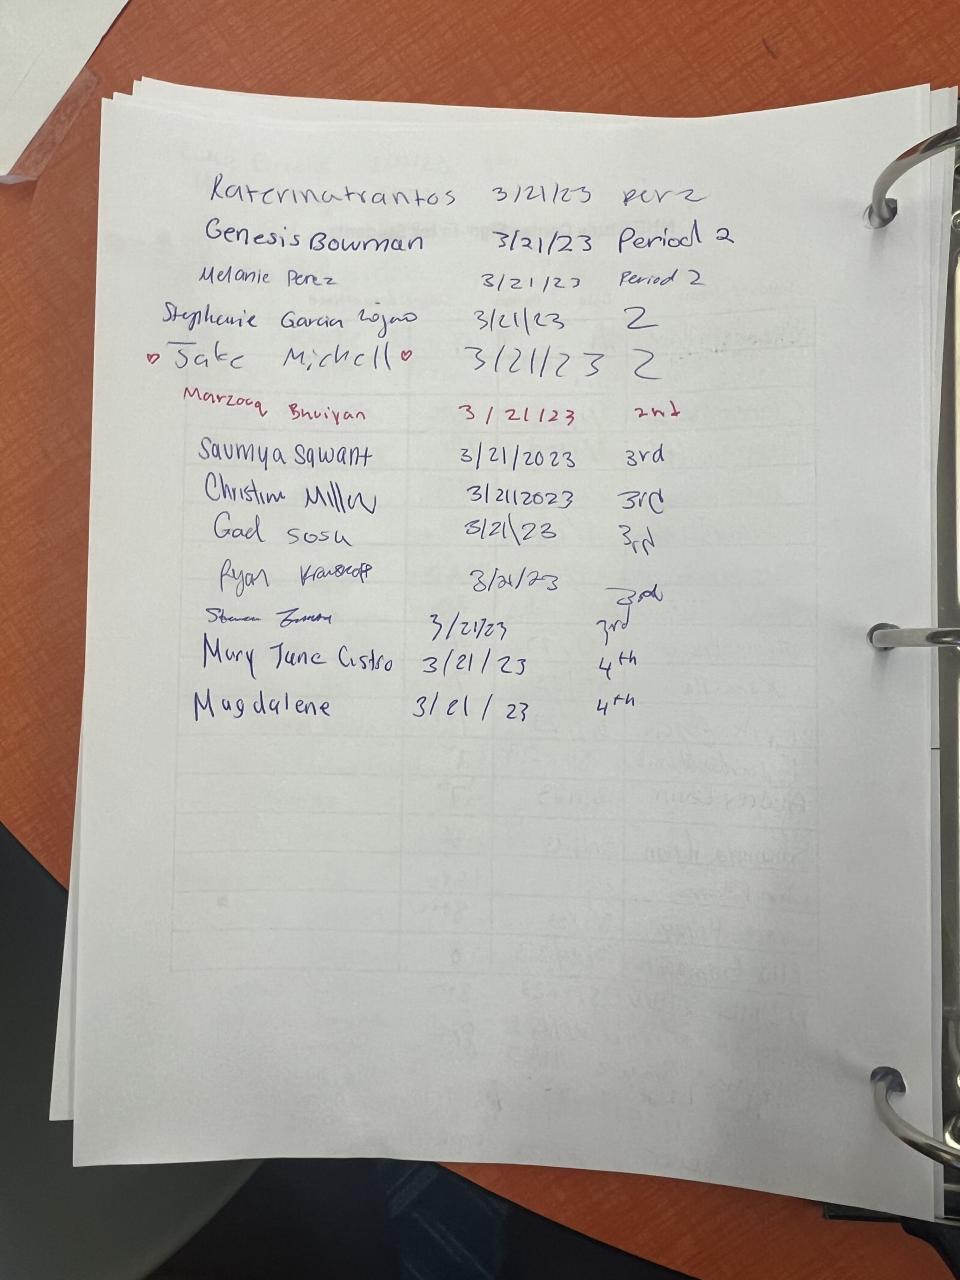 Katerina trantos 3/21/23 per 2
Genesis Bowman 3/21/23 Period 2
Melanie Perez 3/21/23 Period 2
Stephanie Garcia 3/21/23 2
Jake Michell 3/21/23 2
Marzooq Bhuiyan 3/21/23 2nd
Saumya Sawant 3/21/2023 3rd
Christine Miller 3/21/2023 3rd
Gad Sosu 3/21/23 3rd
Ryan 3/21/23 3rd
3/21/23 3rd
Mary Jane Castro 3/21/23 4th
Magdalene 3/21/23 4th